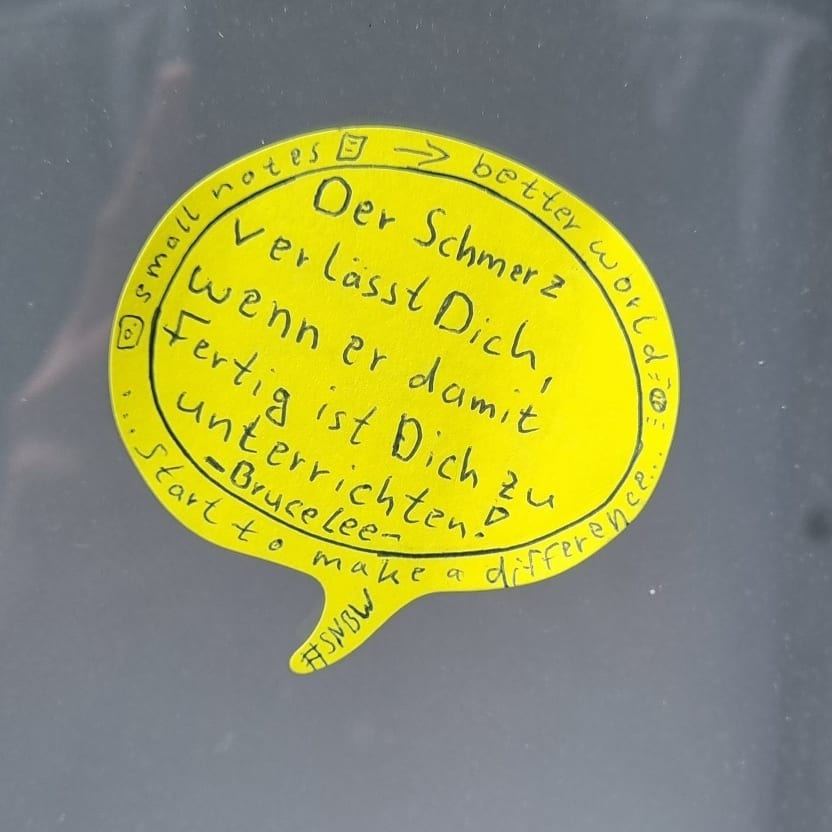 small notes → better world
Der Schmerz
verlässt Dich,
wenn er damit
fertig ist Dich zu
unterrichten!
-Bruce Lee-
...start to make a difference...
#SNBW